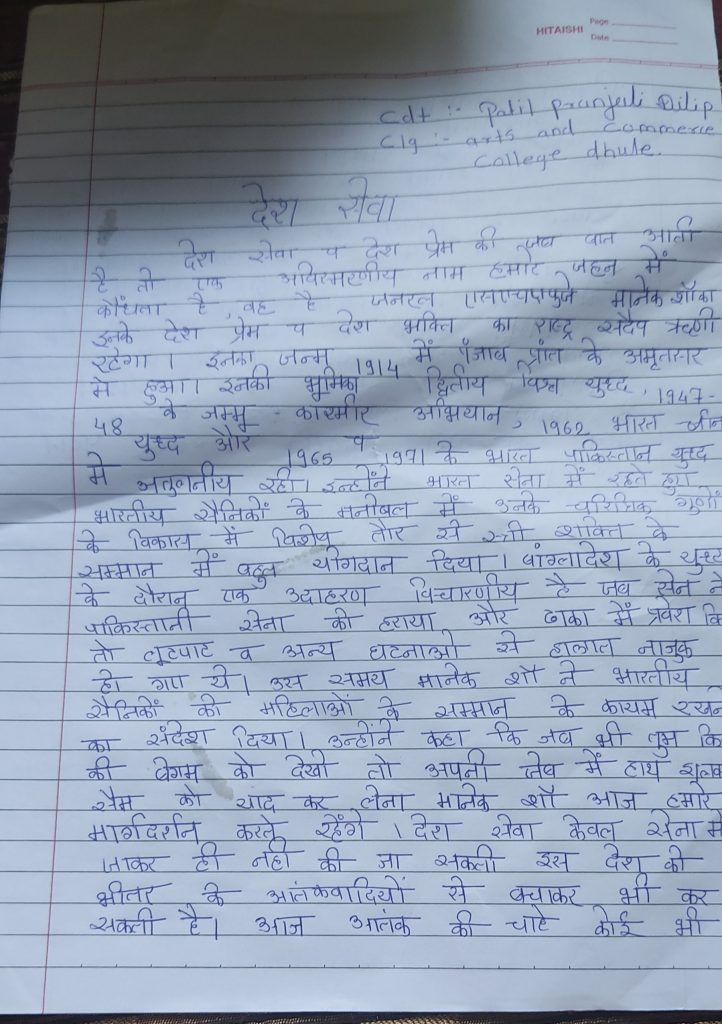 HITAISHI
Page
Date
Cdt :- Patil Pranjali Dilip
Clg :- arts and Commerce
College dhule.
देश सेवा
देश सेवा व देश प्रेम की जब बात आती
है तो एक अविस्मरणीय नाम हमारे जहन में
कौंधता है वह है जनरल मानेक शॉका
इनके देश प्रेम व देश भक्ति का राष्ट्र सदैव ऋणी
रहेगा। इनका जन्म 1914 में पंजाब प्रांत के अमृतसर
मे हुआ। इनकी भूमिका द्वितीय विश्व युध्द, 1947-
48 के जम्मू - काश्मीर अभियान, 1962 भारत चीन
युध्द और 1965 व 1971 के भारत पाकिस्तान युध्द
मे अतुलनीय रही। इन्होंने भारत सेना में रहते हुए
भारतीय सैनिकों के मनोबल में उनके चरित्रिक गुणों
के विकास में विशेष तौर से स्त्री शक्ति के
सम्मान में बहुत योगदान दिया। बांग्लादेश के युध्द
के दौरान एक उदाहरण विचारणीय है जब सेन ने
पाकिस्तानी सेना को हराया और ढाका में प्रवेश कि
तो लूटपाट व अन्य घटनाओ से हालात नाजुक
हो गए थे। उस समय मानेक शॉ ने भारतीय
सैनिकों को महिलाओं के सम्मान के कायम रखने
का संदेश दिया। उन्होंने कहा कि जब भी तुम कि
की बेगम को देखो तो अपनी जेब में हाथ
सैम को याद कर लेना मानेक शॉ आज हमारे
मार्गदर्शन करते रहेंगे। देश सेवा केवल सेना में
जाकर ही नही की जा सकती इस देश को
भीतर के आतंकवादियों से बचाकर भी कर
सकती है। आज आतंक की चाहे कोई भी